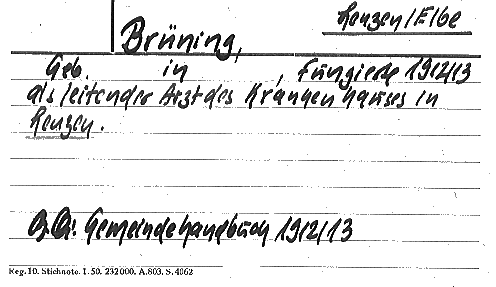 Lenzen/Elbe
Brüning,
Geb. in , fungierte 1912/13
als leitender Arzt des Krankenhauses in
Lenzen.
Gemeindehandbuch 1912/13
Reg. 10. Stichnote. I. 50. 232000. A.803. S. 4062